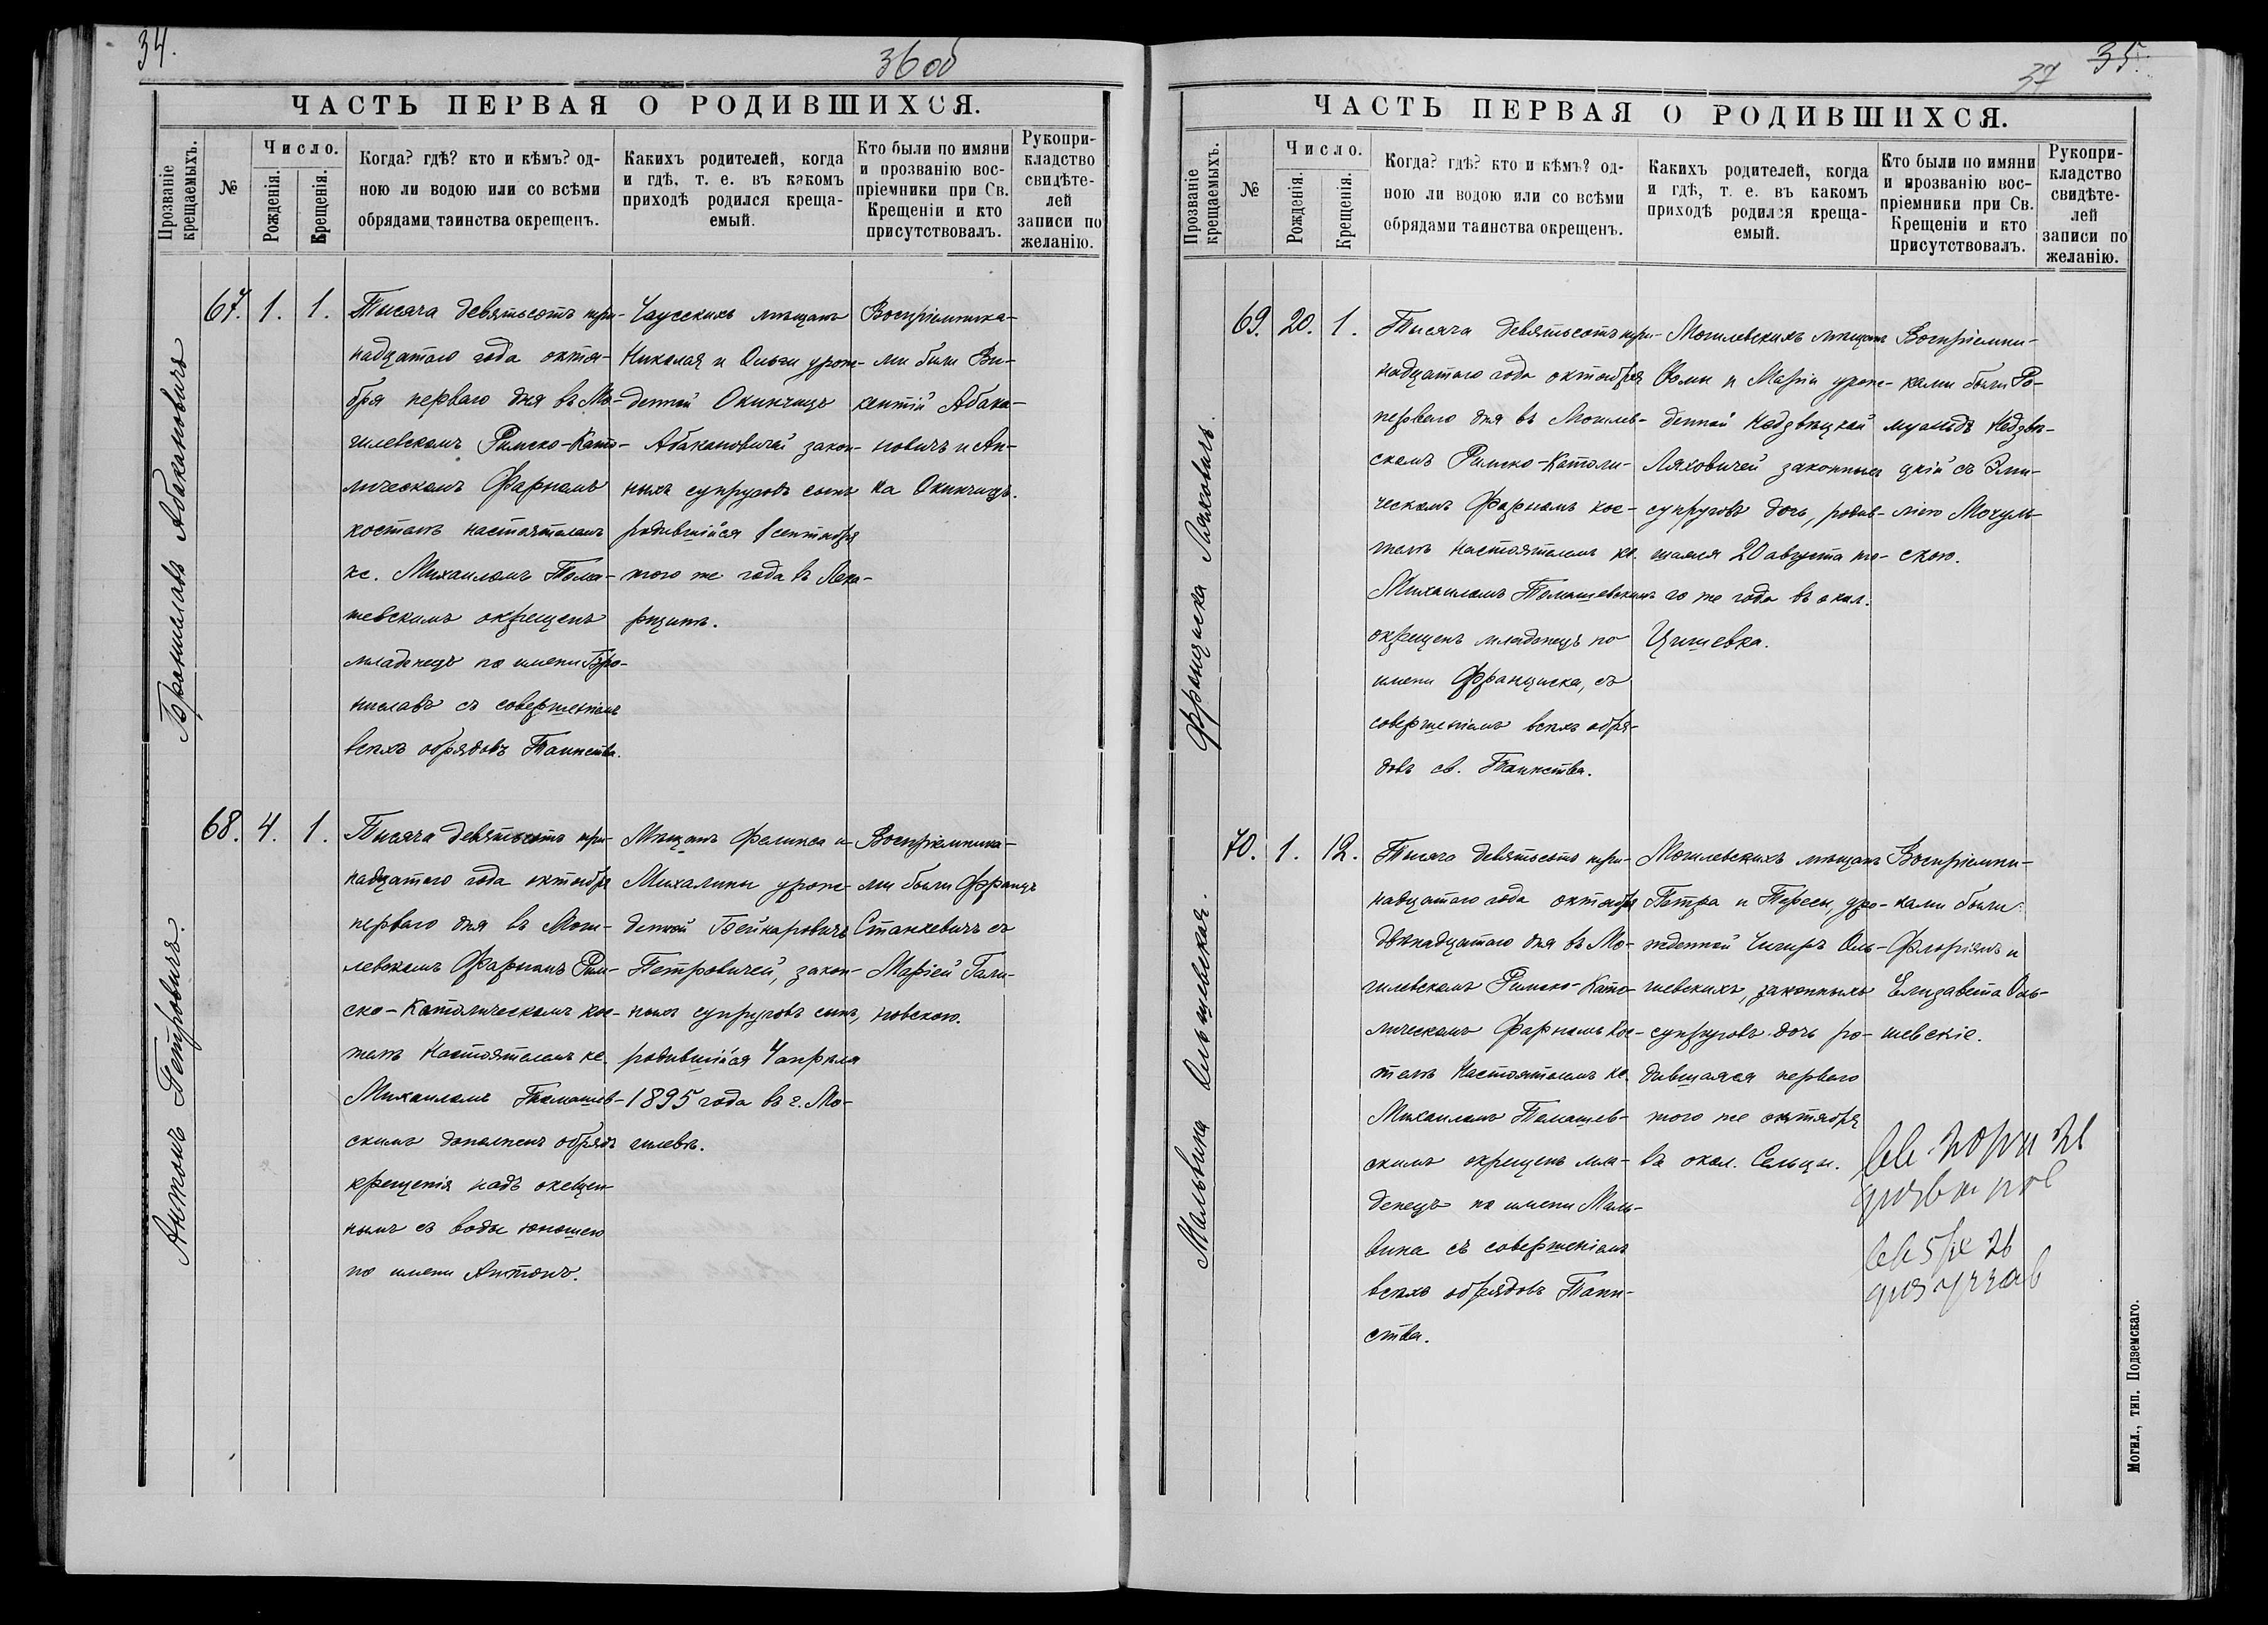 34.
36 об
ЧАСТЬ ПЕРВАЯ О РОДИВШИХСЯ.
Прозваніе крещаемыхъ.
№
Число.
Рожденія.
Крещенія.
Когда? гдѣ? кто и кѣмъ? од-
ною ли водою или со всѣми
обрядами таинства окрещенъ.
Какихъ родителей, когда
и гдѣ, т. е. въ какомъ
приходѣ родился креща-
емый.
Кто были по имяни
и прозванію вос-
пріемники при Св.
Крещеніи и кто
присутствовалъ.
Рукопри-
кладство
свидѣте-
лей
записи по
желанію.
Брониславъ Абакановичъ
67. 1. 1.
Тысяча девятьсотъ три-
надцатаго года октя-
бря перваго дня въ Мо-
гилевскомъ Римско-Като-
лическомъ Фарномъ
костелѣ настоятелемъ
кс. Михаиломъ Тома-
шевскимъ окрещенъ
младенецъ по имени Бро-
ниславъ съ совершеніемъ
всѣхъ обрядовъ Таинства.
Чаусскихъ мѣщанъ
Николая и Ольги урож-
денной Окинчицъ
Абакановичей закон-
ныхъ супруговъ сынъ
родившійся 1 сентября
того же года въ
Воспріемника-
ми были Ви-
кентій Абака-
новичъ и Ан-
на Окинчицъ.
Антонъ Петровичъ.
68. 4. 1.
Тысяча девятьсотъ три-
надцатаго года октября
перваго дня въ Моги-
левскомъ Фарномъ Рим-
ско-Католическомъ кос-
телѣ Настоятелемъ кс.
Михаиломъ Томашев-
скимъ дополненъ обрядъ
крещенія надъ окрещен
нымъ съ воды юношею
по имени Антонъ.
Мѣщанъ Феликса и
Михалины урож-
денной Бейнаровичъ
Петровичей, закон-
ныхъ супруговъ сынъ,
родившійся 4 апрѣля
1895 года въ г. Мо-
гилевѣ.
Воспріемника-
ми были Францъ
Станкевичъ съ
Маріей Гали-
новскою.
37 35.
ЧАСТЬ ПЕРВАЯ О РОДИВШИХСЯ.
Прозваніе крещаемыхъ.
№
Число.
Рожденія.
Крещенія.
Когда? гдѣ? кто и кѣмъ? од-
ною ли водою или со всѣми
обрядами таинства окрещенъ.
Какихъ родителей, когда
и гдѣ, т. е. въ какомъ
приходѣ родился креща-
емый.
Кто были по имяни
и прозванію вос-
пріемники при Св.
Крещеніи и кто
присутствовалъ.
Рукопри-
кладство
свидѣте-
лей
записи по
желанію.
Франциска Ляховичъ.
69. 20. 1.
Тысяча девятьсотъ три-
надцатаго года октября
перваго дня въ Могилев-
скомъ Римско-Католи-
ческомъ Фарномъ кос-
телѣ настоятелемъ кс.
Михаиломъ Томашевскимъ
окрещенъ младенецъ по
имени Франциска, съ
совершеніемъ всѣхъ обря-
довъ св. Таинства.
Могилевскихъ мѣщанъ
Ѳомы и Маріи урож-
денной Недзвѣцкой
Ляховичей законныхъ
супруговъ дочь, родив-
шаяся 20 августа то-
го же года въ окол.
Цишевка.
Воспріемни-
ками были Ро-
муальдъ Недзвѣ-
цкій съ Эми-
ліею Мочуль-
скою.
Мальвина Ольшевская.
70. 1. 12.
Тысяча девятьсотъ три-
надцатаго года октября
двѣнадцатаго дня въ Мо-
гилевскомъ Римско-Като-
лическомъ Фарномъ Кос-
телѣ Настоятелемъ кс.
Михаиломъ Томашев-
скимъ окрещенъ мла-
денецъ по имени Маль-
вина съ совершеніемъ
всѣхъ обрядовъ Таин-
ства.
Могилевскихъ мѣщанъ
Петра и Тересы, уро-
жденной Чигиръ Оль-
шевскихъ, законныхъ
супруговъ дочь ро-
дившаяся перваго
того же октября
въ окол. Сельцы.
Воспріемни-
ками были:
Флоріянъ и
Елизавета Оль-
шевскіе.
Могил., тип. Подземскаго.